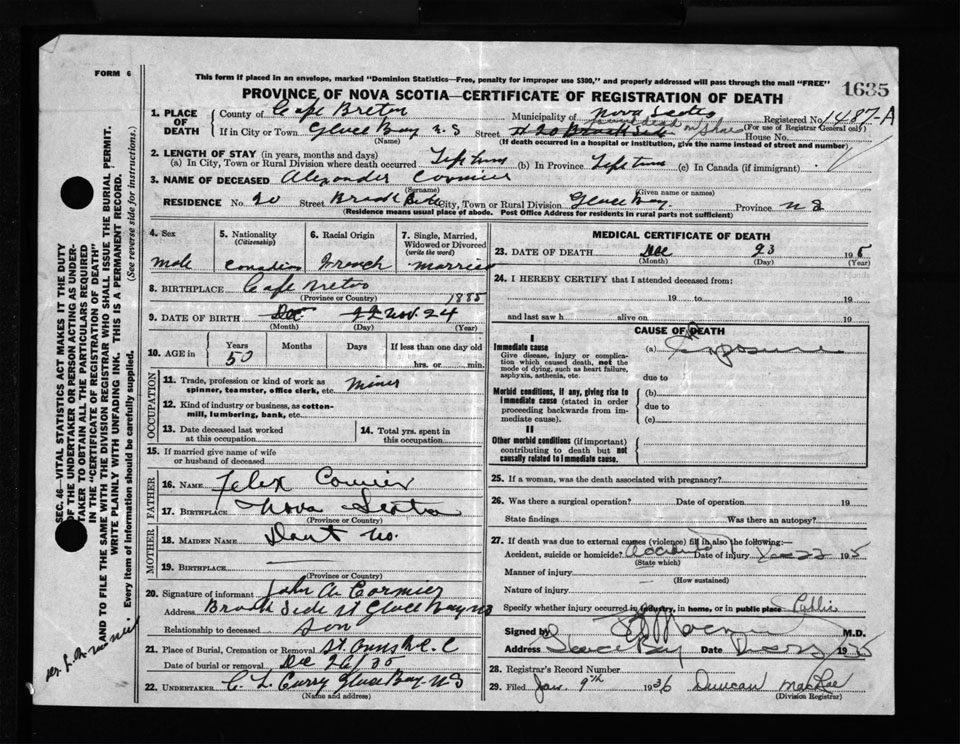 FORM 6
This form if placed in an envelope, marked "Dominion Statistics—Free, penalty for improper use $300," and properly addressed will pass through the mail "FREE"
1635
PROVINCE OF NOVA SCOTIA—CERTIFICATE OF REGISTRATION OF DEATH
1. PLACE OF DEATH
County of Cape Breton Municipality of Nova Scotia Registered No. 1487-A
(For use of Registrar General only)
If in City or Town Glace Bay N.S Street # 20 Brook Side found dead on Shore House No.
(Name) (If death occurred in a hospital or institution, give the name instead of street and number)
2. LENGTH OF STAY (in years, months and days)
(a) In City, Town or Rural Division where death occurred Life time (b) In Province Life time (c) In Canada (if immigrant)
3. NAME OF DECEASED Alexander Cormier
(Surname) (Given name or names)
RESIDENCE No 20 Street Brook Side City, Town or Rural Division Glace Bay Province N S
(Residence means usual place of abode. Post Office Address for residents in rural parts not sufficient)
4. Sex
5. Nationality (Citizenship)
6. Racial Origin
7. Single, Married, Widowed or Divorced (write the word)
male Canadian French married
8. BIRTHPLACE Cape Breton
(Province or Country) 1885
9. DATE OF BIRTH Dec Nov. 24
(Month) (Day) (Year)
10. AGE in Years Months Days If less than one day old
50 hrs. or min.
OCCUPATION
11. Trade, profession or kind of work as spinner, teamster, office clerk, etc. miner
12. Kind of industry or business, as cotton-mill, lumbering, bank, etc.
13. Date deceased last worked at this occupation
14. Total yrs. spent in this occupation
15. If married give name of wife or husband of deceased
FATHER
16. NAME Felix Cormier
17. BIRTHPLACE Nova Scotia
(Province or Country)
MOTHER
18. MAIDEN NAME Don't no.
19. BIRTHPLACE —
(Province or Country)
20. Signature of informant John A Cormier
Address Brook Side St Glace Bay NS
Relationship to deceased son
21. Place of Burial, Cremation or Removal St Anns R C C
Date of burial or removal Dec 26/35
22. UNDERTAKER C. L. Curry Glace Bay N S
(Name and address)
MEDICAL CERTIFICATE OF DEATH
23. DATE OF DEATH Dec 23 1935
(Month) (Day) (Year)
24. I HEREBY CERTIFY that I attended deceased from:
19 to 19
and last saw h alive on 19
CAUSE OF DEATH
I
Immediate cause (a) Exposure
Give disease, injury or complication which caused death, not the mode of dying, such as heart failure, asphyxia, asthenia, etc.
due to
Morbid conditions, if any, giving rise to immediate cause (stated in order proceeding backwards from immediate cause).
(b)
due to
(c)
II
Other morbid conditions (if important) contributing to death but not causally related to immediate cause.
25. If a woman, was the death associated with pregnancy?
26. Was there a surgical operation? Date of operation 19
State findings Was there an autopsy?
27. If death was due to external causes (violence) fill in also the following:
Accident, suicide or homicide? Accident Date of injury Dec 22 1935
(State which)
Manner of injury
(How sustained)
Nature of injury
Specify whether injury occurred in industry, in home, or in public place Public
Signed by M.D.
Address Glace Bay Date Dec 1935
28. Registrar's Record Number
29. Filed Jan. 9th 1936 Duncan MacRae
(Division Registrar)
SEC. 46—VITAL STATISTICS ACT MAKES IT THE DUTY
OF THE UNDERTAKER OR PERSON ACTING AS UNDERTAKER TO OBTAIN ALL THE PARTICULARS REQUIRED
IN THE "CERTIFICATE OF REGISTRATION OF DEATH"
AND TO FILE THE SAME WITH THE DIVISION REGISTRAR WHO SHALL ISSUE THE BURIAL PERMIT.
WRITE PLAINLY WITH UNFADING INK. THIS IS A PERMANENT RECORD.
Every item of Information should be carefully supplied. (See reverse side for instructions.)